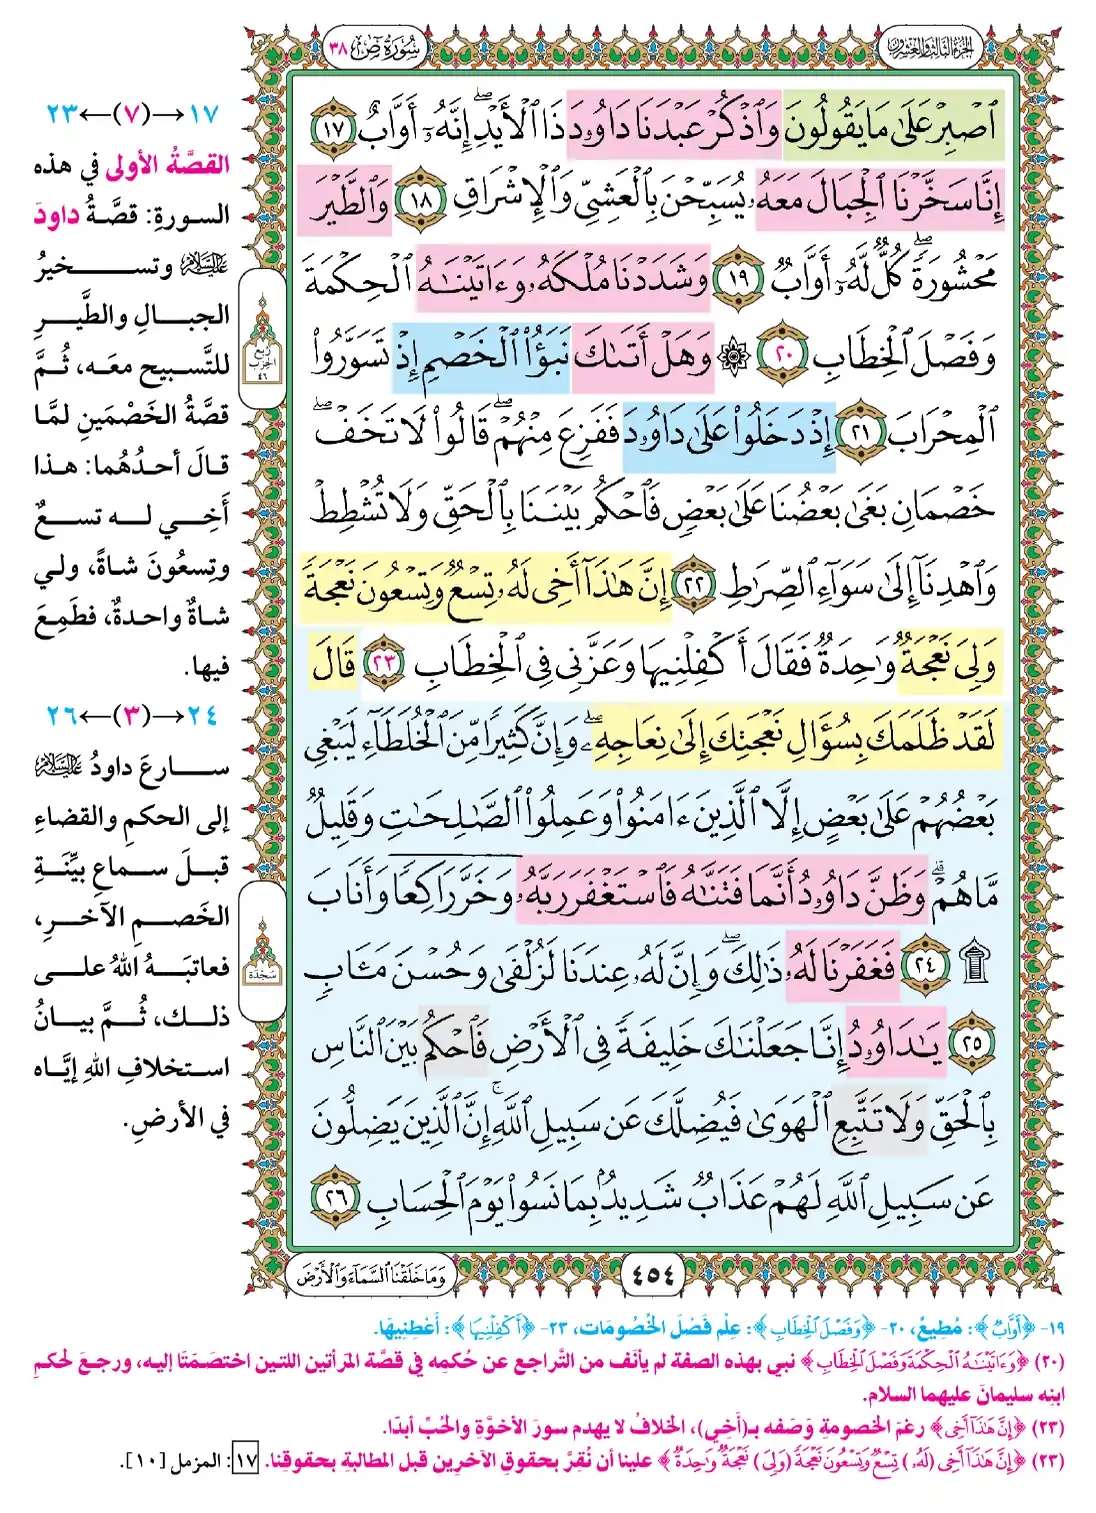 الجزء الثالث والعشرون
سُورَةُ صٓ ٣٨
ٱصۡبِرۡ عَلَىٰ مَا يَقُولُونَ وَٱذۡكُرۡ عَبۡدَنَا دَاوُۥدَ ذَا ٱلۡأَيۡدِۖ إِنَّهُۥٓ أَوَّابٌ ١٧
إِنَّا سَخَّرۡنَا ٱلۡجِبَالَ مَعَهُۥ يُسَبِّحۡنَ بِٱلۡعَشِيِّ وَٱلۡإِشۡرَاقِ ١٨ وَٱلطَّيۡرَ
مَحۡشُورَةٗۖ كُلّٞ لَّهُۥٓ أَوَّابٞ ١٩ وَشَدَدۡنَا مُلۡكَهُۥ وَءَاتَيۡنَٰهُ ٱلۡحِكۡمَةَ
وَفَصۡلَ ٱلۡخِطَابِ ٢٠ ۞ وَهَلۡ أَتَىٰكَ نَبَؤُاْ ٱلۡخَصۡمِ إِذۡ تَسَوَّرُواْ
ٱلۡمِحۡرَابَ ٢١ إِذۡ دَخَلُواْ عَلَىٰ دَاوُۥدَ فَفَزِعَ مِنۡهُمۡۖ قَالُواْ لَا تَخَفۡۖ
خَصۡمَانِ بَغَىٰ بَعۡضُنَا عَلَىٰ بَعۡضٖ فَٱحۡكُم بَيۡنَنَا بِٱلۡحَقِّ وَلَا تُشۡطِطۡ
وَٱهۡدِنَآ إِلَىٰ سَوَآءِ ٱلصِّرَٰطِ ٢٢ إِنَّ هَٰذَآ أَخِي لَهُۥ تِسۡعٞ وَتِسۡعُونَ نَعۡجَةٗ
وَلِيَ نَعۡجَةٞ وَٰحِدَةٞ فَقَالَ أَكۡفِلۡنِيهَا وَعَزَّنِي فِي ٱلۡخِطَابِ ٢٣ قَالَ
لَقَدۡ ظَلَمَكَ بِسُؤَالِ نَعۡجَتِكَ إِلَىٰ نِعَاجِهِۦۖ وَإِنَّ كَثِيرٗا مِّنَ ٱلۡخُلَطَآءِ لَيَبۡغِي
بَعۡضُهُمۡ عَلَىٰ بَعۡضٍ إِلَّا ٱلَّذِينَ ءَامَنُواْ وَعَمِلُواْ ٱلصَّٰلِحَٰتِ وَقَلِيلٞ
مَّا هُمۡۗ وَظَنَّ دَاوُۥدُ أَنَّمَا فَتَنَّٰهُ فَٱسۡتَغۡفَرَ رَبَّهُۥ وَخَرَّۤ رَاكِعٗاۤ وَأَنَابَ
۩ ٢٤ فَغَفَرۡنَا لَهُۥ ذَٰلِكَۖ وَإِنَّ لَهُۥ عِندَنَا لَزُلۡفَىٰ وَحُسۡنَ مَـَٔابٖ
٢٥ يَٰدَاوُۥدُ إِنَّا جَعَلۡنَٰكَ خَلِيفَةٗ فِي ٱلۡأَرۡضِ فَٱحۡكُم بَيۡنَ ٱلنَّاسِ
بِٱلۡحَقِّ وَلَا تَتَّبِعِ ٱلۡهَوَىٰ فَيُضِلَّكَ عَن سَبِيلِ ٱللَّهِۚ إِنَّ ٱلَّذِينَ يَضِلُّونَ
عَن سَبِيلِ ٱللَّهِ لَهُمۡ عَذَابٞ شَدِيدُۢ بِمَا نَسُواْ يَوۡمَ ٱلۡحِسَابِ ٢٦
١٧→(٧)←٢٣
القصَّةُ الأولى في هذه
السورةِ: قصَّةُ داودَ
عليه السلام وتسخيرُ
الجبالِ والطَّيرِ
للتَّسبيحِ معَه، ثُمَّ
قصَّةُ الخَصْمَينِ لمَّا
قالَ أحدُهُما: هذا
أَخِي له تسعٌ
وتِسعُونَ شاةً، ولي
شاةٌ واحدةٌ، فطَمِعَ
فيها.
٢٤→(٣)←٢٦
سارعَ داودُ عليه السلام
إلى الحكمِ والقضاءِ
قبلَ سماعِ بيِّنَةِ
الخَصمِ الآخرِ،
فعاتبَهُ اللهُ على
ذلك، ثُمَّ بيانُ
استخلافِ اللهِ إيَّاه
في الأرضِ.
رُبع الحِزب ٤٦
سَجْدَة
٤٥٤
وَمَا خَلَقْنَا ٱلسَّمَآءَ وَٱلْأَرْضَ
١٩- ﴿أَوَّابٌ﴾: مُطِيعٌ، ٢٠- ﴿وَفَصْلَ ٱلْخِطَابِ﴾: عِلْمِ فَصْلَ الخُصُومَاتِ، ٢٣- ﴿أَكْفِلْنِيهَا﴾: أَعْطِنِيهَا.
(٢٠) ﴿وَءَاتَيْنَٰهُ ٱلْحِكْمَةَ وَفَصْلَ ٱلْخِطَابِ﴾ نبي بهذه الصفة لم يأنَف من التَّراجع عن حُكمِه في قصَّة المَرأتين اللتين اختصَمَتَا إليه، ورجعَ لحكمِ
ابنِه سليمانَ عليهما السلام.
(٢٣) ﴿إِنَّ هَٰذَآ أَخِي﴾ رغمَ الخصومةِ وَصَفه بـ(أَخِي)، الخلافُ لا يهدم سورَ الأخوَّةِ والحُبِّ أبدًا.
(٢٣) ﴿إِنَّ هَٰذَآ أَخِي (لَهُۥ) تِسْعٌ وَتِسْعُونَ نَعْجَةً (وَلِيَ) نَعْجَةٌ وَٰحِدَةٌ﴾ علينا أن نُقِرَّ بحقوقِ الآخرين قبل المطالبةِ بحقوقِنا. ١٧: المزمل [١٠].